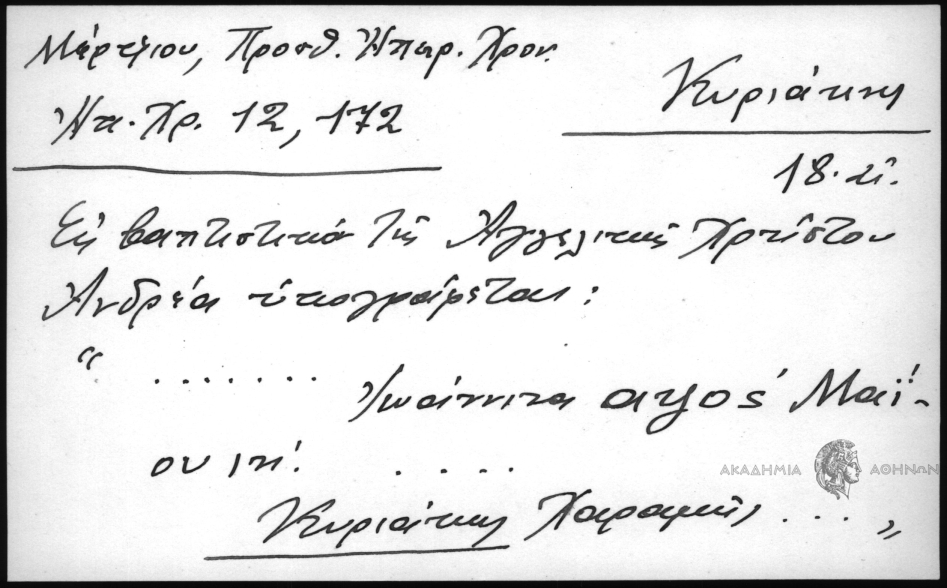 Μέρτζιου, Προσθ. Ἠπειρ. Χρον.
Ἠπ. Χρ. 12, 172
Κυριάκης
18. αἰ.
Εἰς βαπτιστικά τῆς Ἀγγελικῆς Χρήστου
Ἀνδρέα ὑπογράφεται :
“ . . . . . . .
Ἰωάννινα αψοσ´ Μαΐ-
ου ιη´. . . . .
Κυριάκης Χαραμῆς . . . „
ΑΚΑΔΗΜΙΑ ΑΘΗΝΩΝ